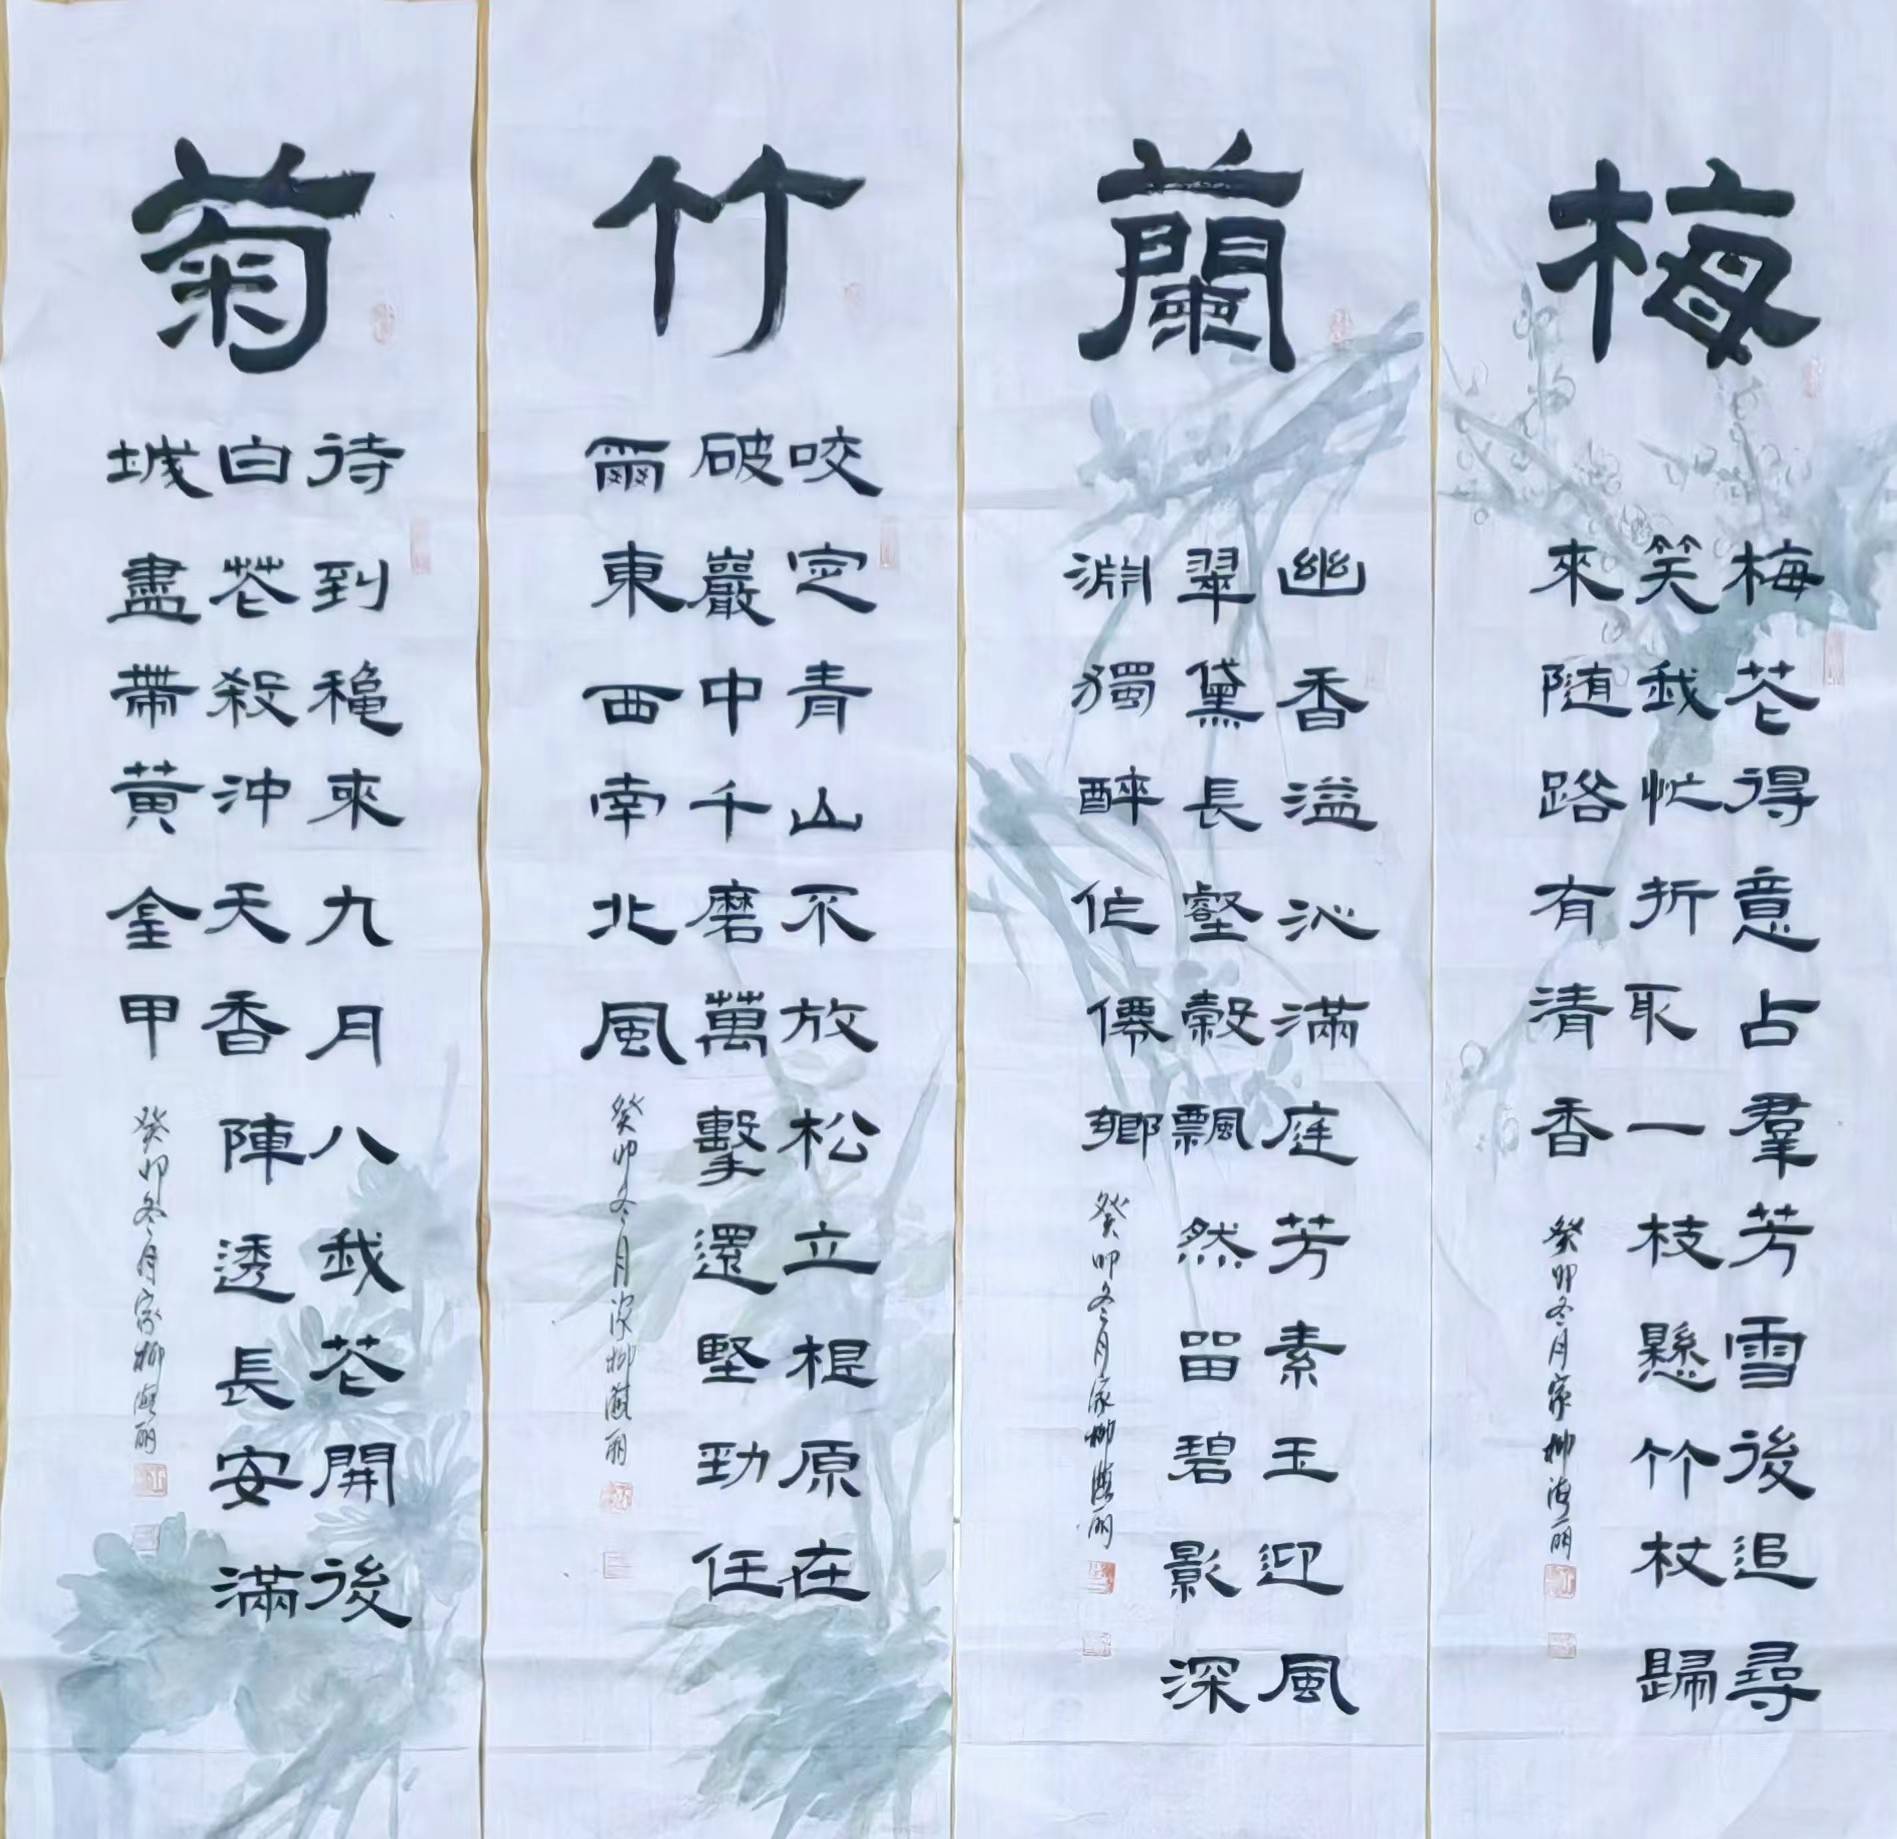 梅
梅花得意占羣芳雪後追尋
笑我忙折取一枝懸竹杖歸
來随路有清香
癸卯冬月
蘭
幽香溢沁滿庭芳素玉迎風
翠黛長壑縠飄然留碧影深
淵獨醉作僊鄉
癸卯冬月
竹
咬定青山不放松立根原在
破巖中千磨萬擊還堅勁任
爾東西南北風
癸卯冬月
菊
待到穐來九月八我花開後
白花殺沖天香陣透長安滿
城盡帶黃金甲
癸卯冬月